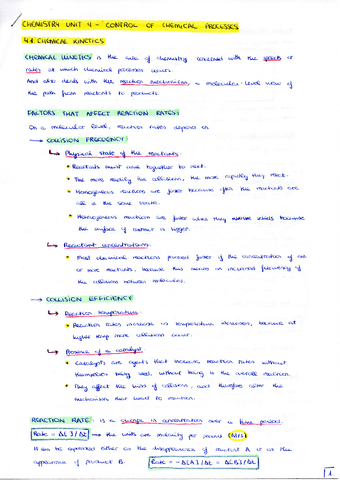 CHEMISTRY UNIT 4 - CONTROL OF CHEMICAL PROCESSES
4.1 CHEMICAL KINETICS
CHEMICAL KINETICS is the area of chemistry concerned with the speeds or
rates at which chemical processes occur.
And also deals with the reaction mechanism, a molecular-level view of
the path from reactants to products.
FACTORS THAT AFFECT REACTION RATES:
On a molecular level, reaction rates depend on
→ COLLISION FREQUENCY:
↳ Physical state of the reactants:
• Reactants must come together to react.
• The more readily the collisions, the more rapidly they react.
• Homogeneous reactions are faster because the reactants are
all in the same state.
• Homogeneous reactions are faster when they because
the surface of contact is bigger.
↳ Reactant concentrations
• Most chemical reactions proceed faster if the concentration of one
or more reactants, because this means an increased frequency of
the collisions between molecules.
→ COLLISION EFFICIENCY
↳ Reaction temperature
• Reaction rates increase as temperature increases, because at
higher temp more collisions occur.
↳ Presence of a catalyst
• Catalysts are agents that increase reaction rates without
themselves being used, without being in the overall reaction.
• They affect the kind of collisions, and therefore alter the
mechanism that lead to reaction.
REACTION RATE: is a change in concentration over a time period.
Rate = Δ[ ]/Δt → the units are molarity per second (M/s)
It can be expressed either as the disappearance of reactant A or as the
appearance of product B. Rate = -Δ[A]/Δt = Δ[B]/Δt
1